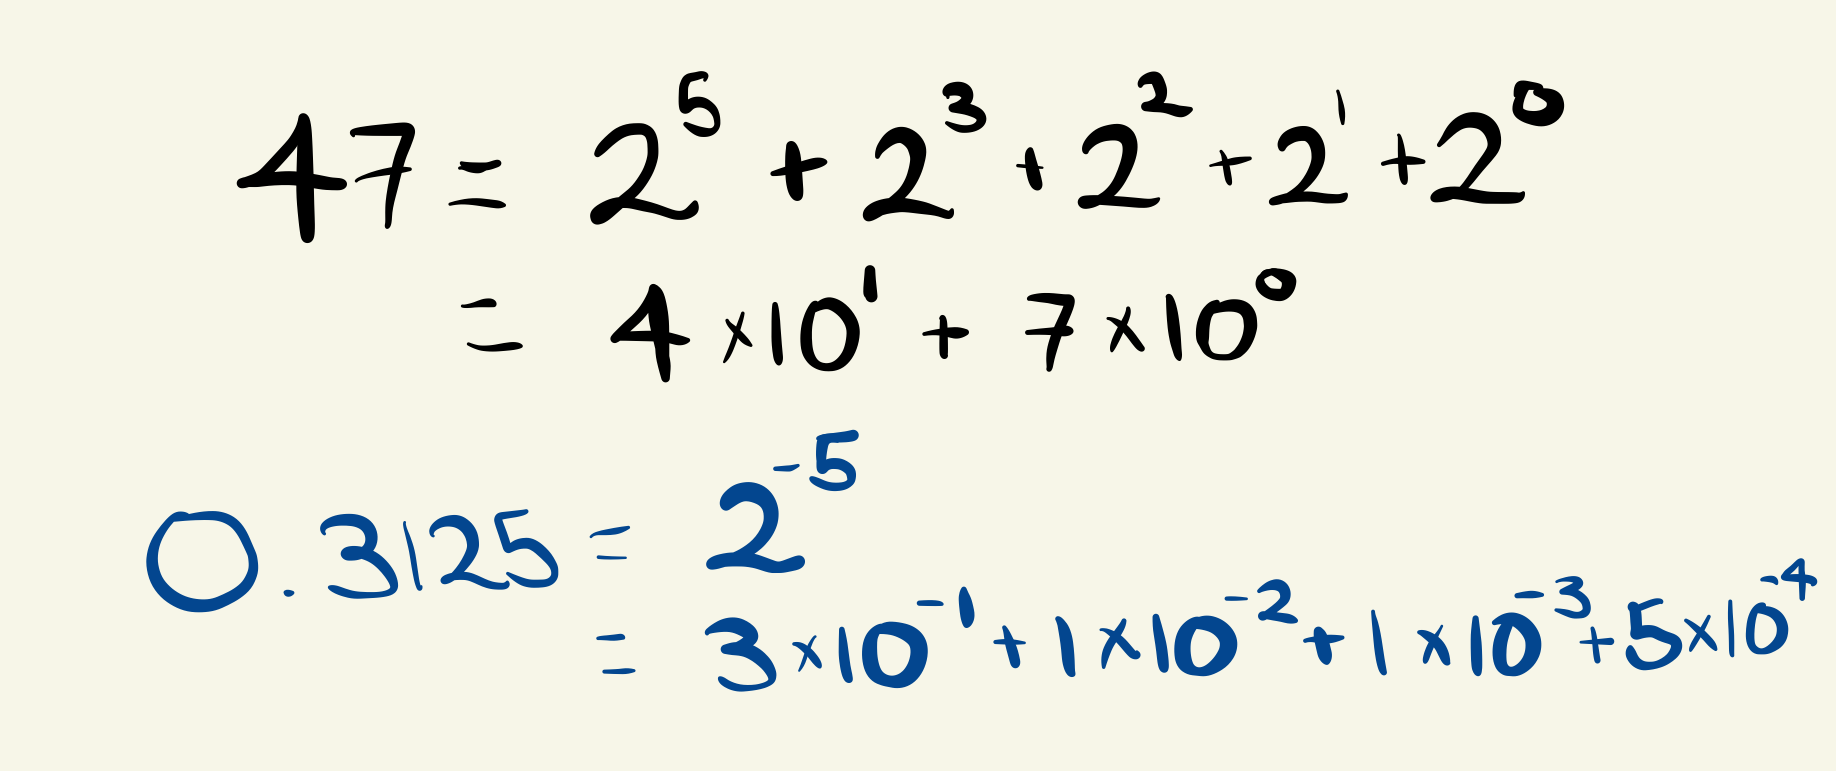 47 = 2⁵ + 2³ + 2² + 2¹ + 2⁰
= 4 × 10¹ + 7 × 10⁰
0.3125 = 2⁻⁵
= 3 × 10⁻¹ + 1 × 10⁻² + 1 × 10⁻³ + 5 × 10⁻⁴